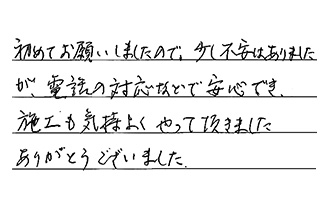 初めてお願いしましたので、少し不安はありました
が、電話の対応などで安心でき、
施工も気持よくやって頂きました
ありがとうございました。